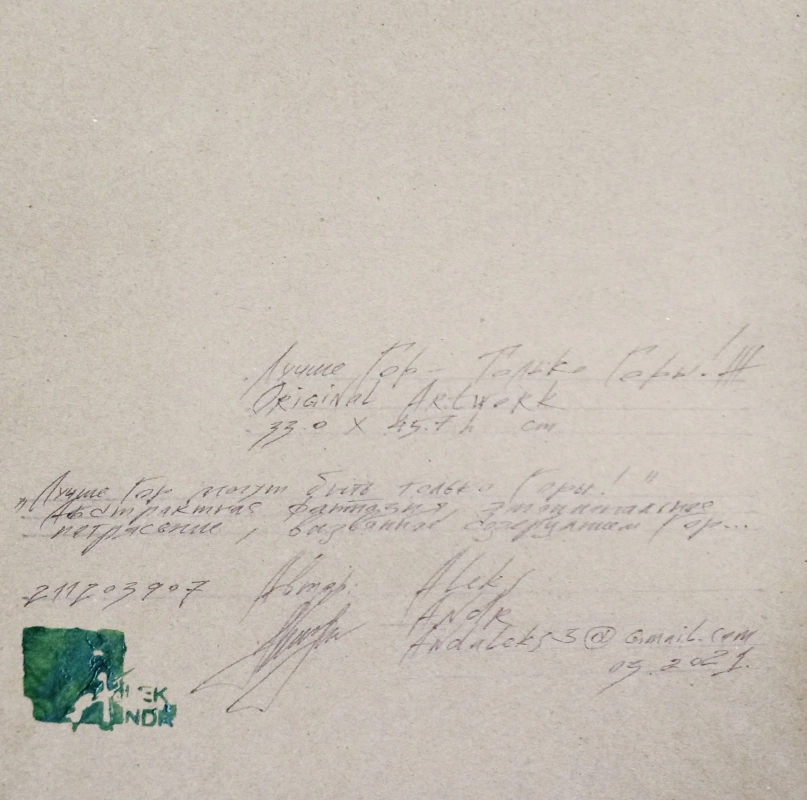 Лучше Гор - Только Горы!!!
Original Artwork
33.0 x 45.7 h cm
„Лучше Гор могут быть только Горы!"
Абстрактная фантазия, эмоциональное
потрясение, вызванное созерцанием Гор...
211203907 Автор: Aleks
Andr
Andaleks3@gmail.com
03.2021.
ALEK
ANDR